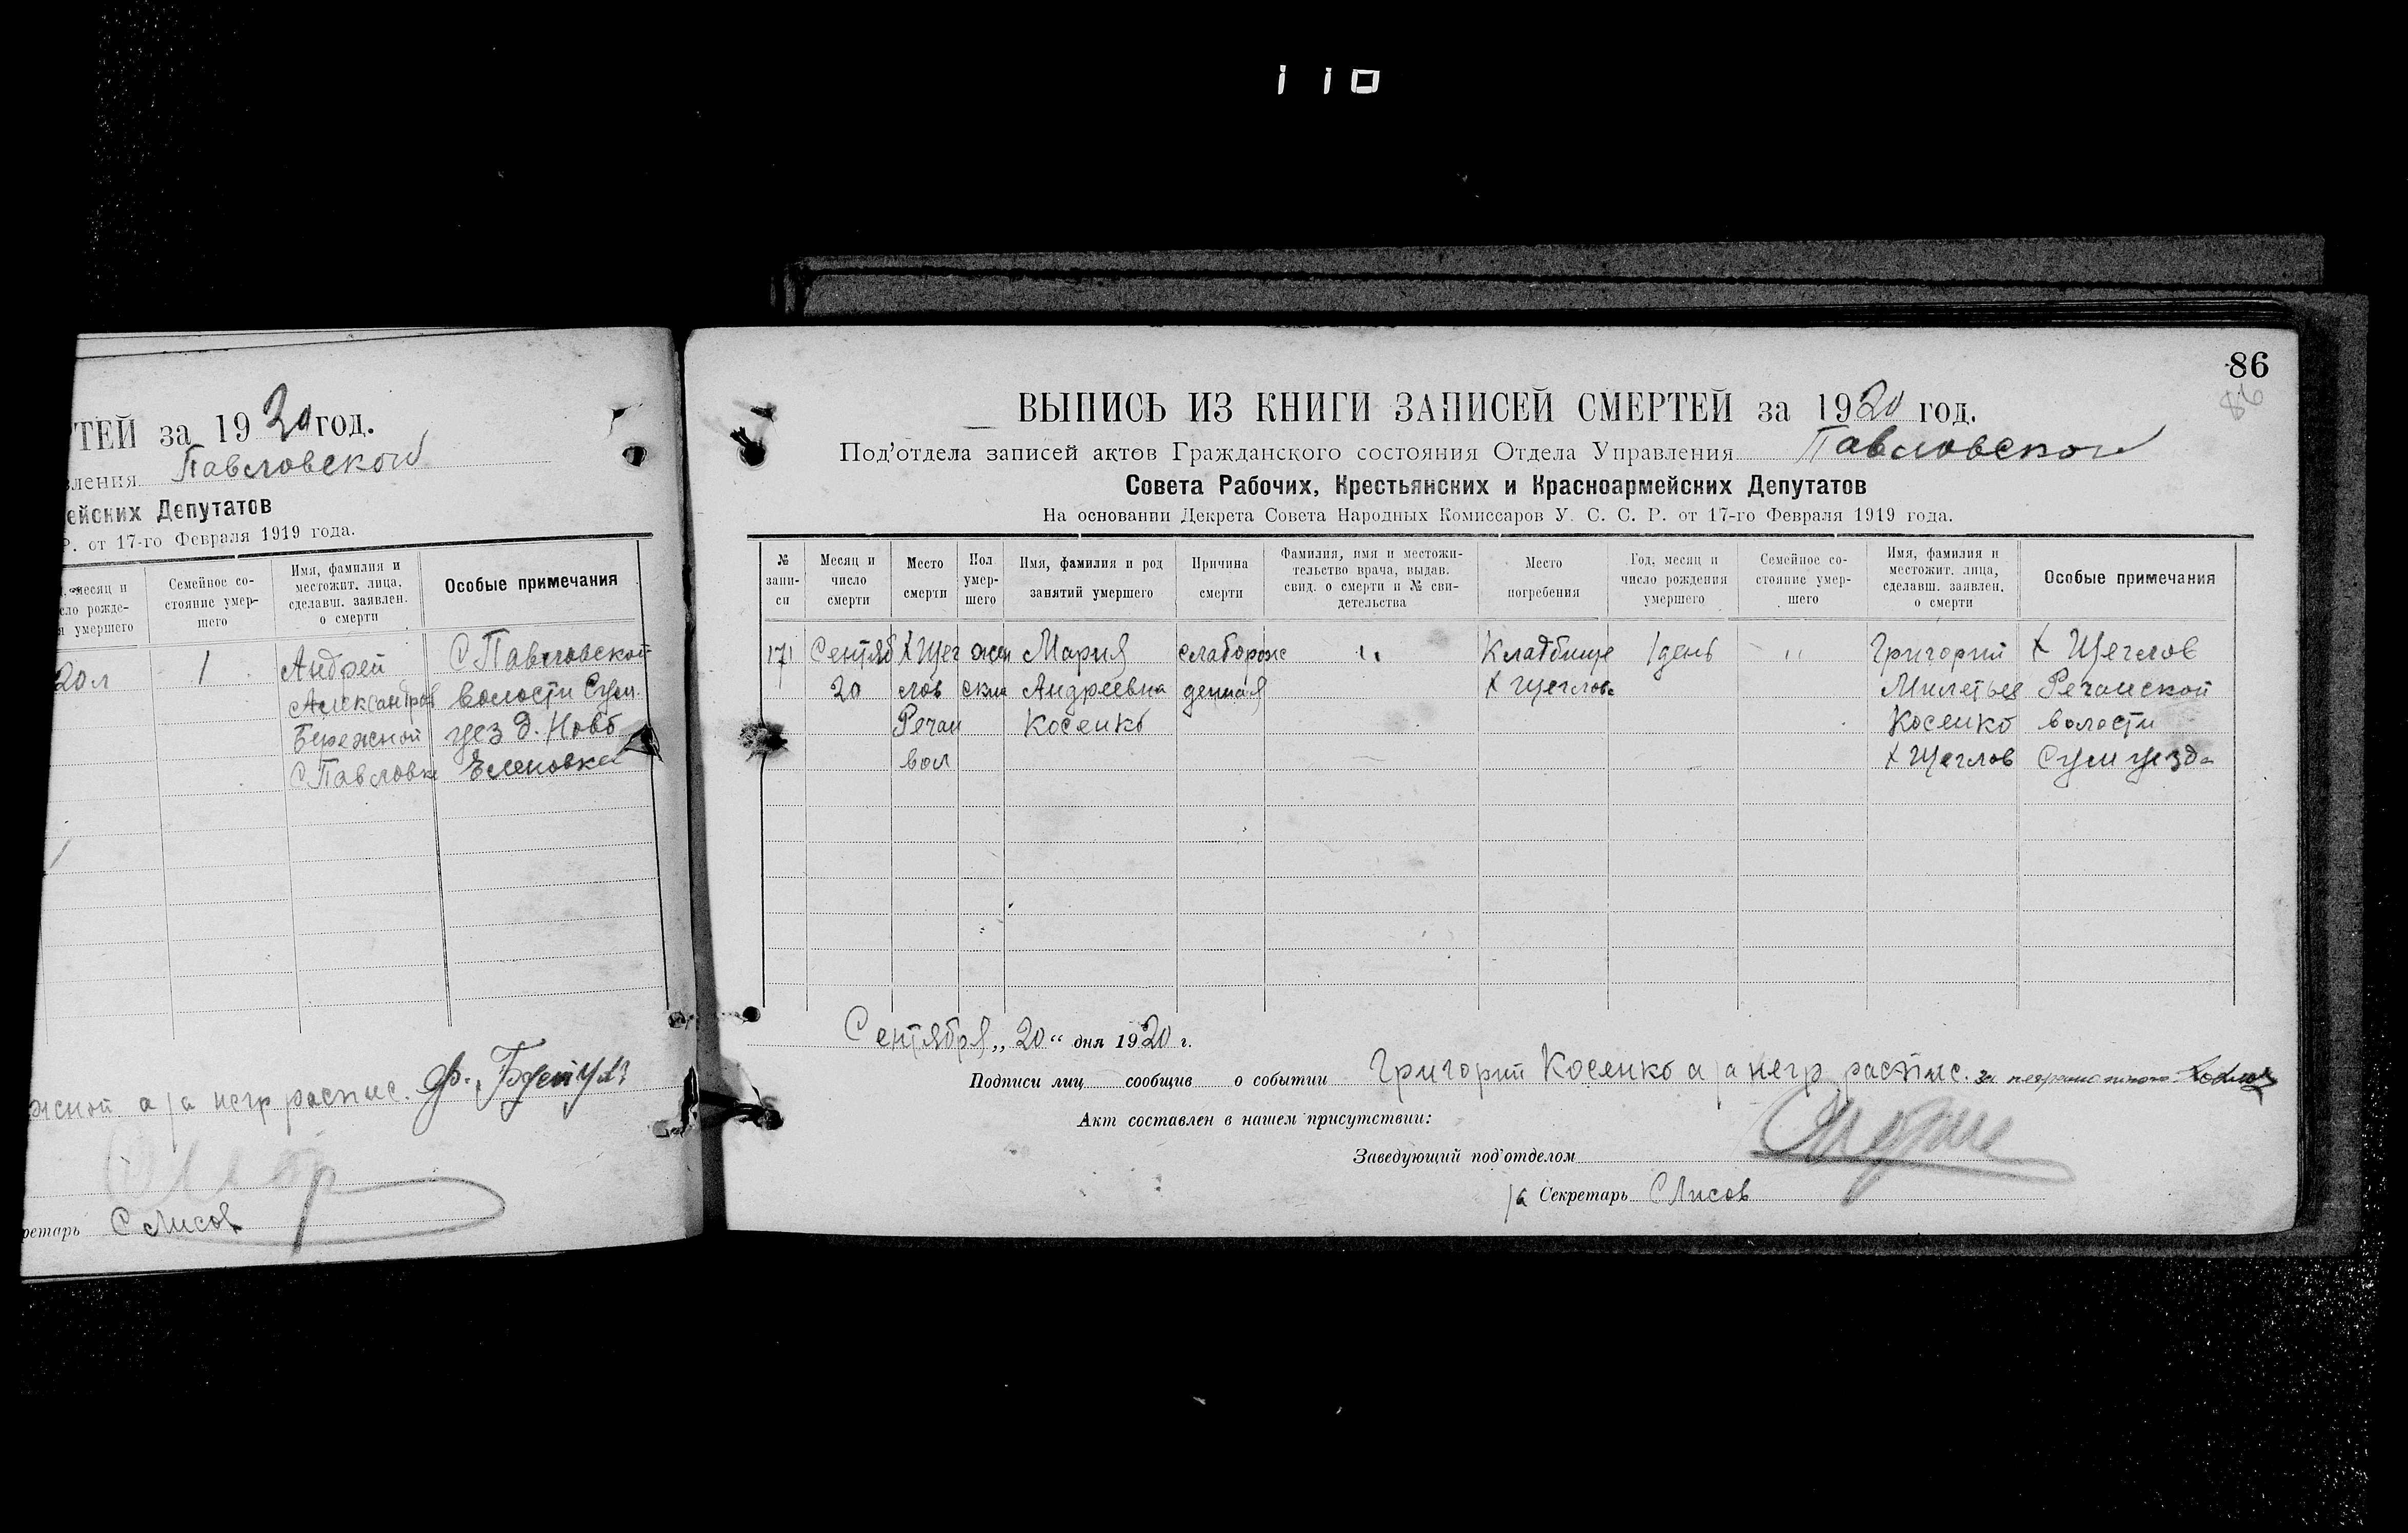 110
ТЕЙ за 1920 год.
вления Павловской
ейских Депутатов
Р. от 17-го Февраля 1919 года.
месяц и
сло рожде-
я умершего
Семейное со-
стояние умер-
шего
Имя, фамилия и
местожит. лица,
сделавш. заявлен.
о смерти
Особые примечания
20 л
1
Андрей
Александров
Бережной
С Павловке
С Павловской
волости Сум
уез д. Ново
Еленовке
жной а за негр распис.
ретарь С Лисов
86
86
ВЫПИСЬ ИЗ КНИГИ ЗАПИСЕЙ СМЕРТЕЙ за 1920 год.
Под'отдела записей актов Гражданского состояния Отдела Управления Павловской
Совета Рабочих, Крестьянских и Красноармейских Депутатов
На основании Декрета Совета Народных Комиссаров У. С. С. Р. от 17-го Февраля 1919 года.
№
запи-
си
Месяц и
число
смерти
Место
смерти
Пол
умер-
шего
Имя, фамилия и род
занятий умершего
Причина
смерти
Фамилия, имя и местожи-
тельство врача, выдав.
свид. о смерти и № сви-
детельства
Место
погребения
Год, месяц и
число рождения
умершего
Семейное со-
стояние умер-
шего
Имя, фамилия и
местожит. лица,
сделавш. заявлен.
о смерти
Особые примечания
171
Сентяб
20
Х Щег
лов
Речан
вол
жен
ския
Мария
Андреевна
Косенко
слаборож
денная
"
Кладбище
х Щеглов
1 день
"
Григорий
Милетьев
Косенко
х Щеглов
х Щеглов
Речанской
волости
Сум уезда
Сентября „ 20 “ дня 1920 г.
Подписи лиц сообщив о событии Григорий Косенко а за негр распис. за неграмотного
Акт составлен в нашем присутствии:
Заведующий под'отделом
за Секретарь С Лисов